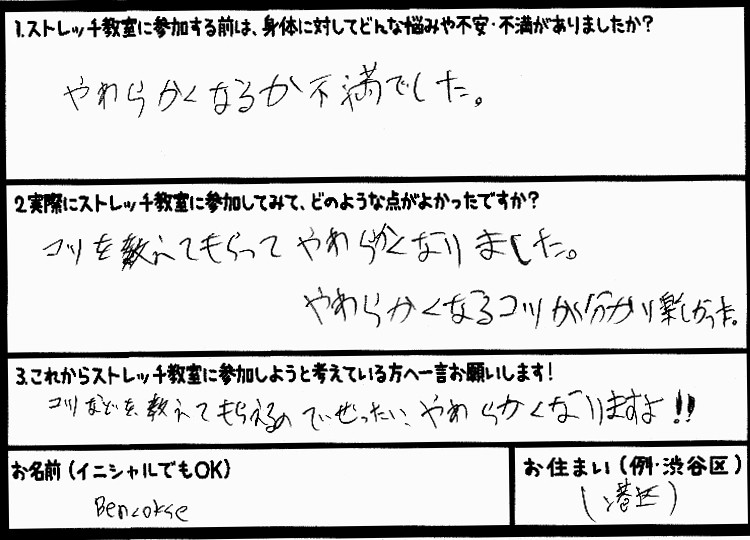 1.ストレッチ教室に参加する前は、身体に対してどんな悩みや不安・不満がありましたか?
やわらかくなるか不満でした。
2.実際にストレッチ教室に参加してみて、どのような点がよかったですか?
コツを教えてもらってやわらかくなりました。
やわらかくなるコツが分かり楽しかった。
3.これからストレッチ教室に参加しようと考えている方へ一言お願いします!
コツなどを、教えてもらえるのでぜったい、やわらかくなりますよ!!
お名前(イニシャルでもOK)
お住まい(例・渋谷区)
(港区)